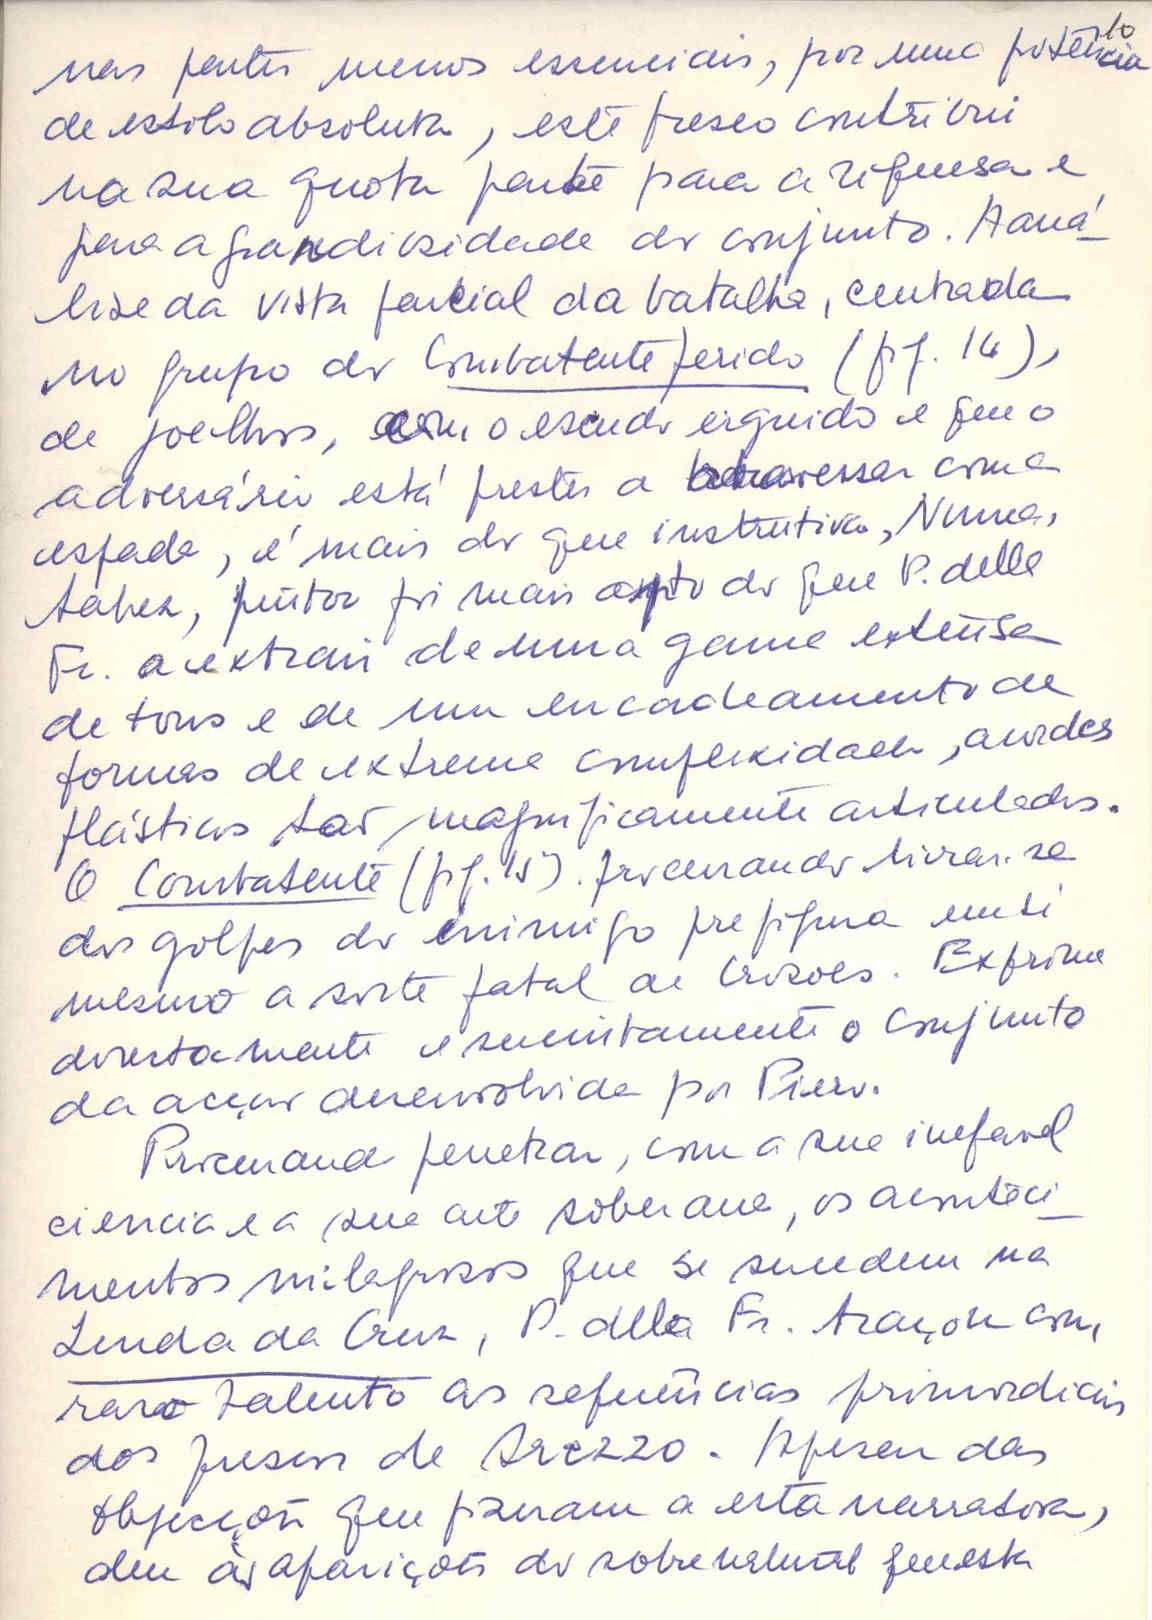 10
nas partes menos essenciais, por uma potência
de estilo absoluta, este fresco contribui
na sua quota parte para a riquesa e
para a grandiosidade do conjunto. A aná-
lise da vista parcial da batalha, centrada
no grupo do Combatente ferido (fig. 14),
de joelhos, com o escudo erguido e que o
adversário está prestes a atravessar com a
espada, é mais do que instrutiva. Nunca,
talvez, pintor foi mais apto do que P. della
Fr. a extrair de uma gama extensa
de tons e de um encadeamento de
formas de extrema complexidade, acordes
plásticos tão magnificamente articulados.
O Combatente (fig. 15). procurando livrar-se
dos golpes do inimigo prefigura em si
mesmo a sorte fatal de Crosoes. Exprime
directamente e sucintamente o conjunto
da acção desenvolvida por Piero.
Procurando penetrar, com a sua inefavel
ciencia e a sua arte soberana, os aconteci-
mentos milagrosos que se sucedem na
Lenda da Cruz, P. della Fr. traçou com
raro talento as sequências primordiais
dos frescos de Arezzo. Apesar das
objecções que fizeram a esta narrativa,
deu às aparições do sobrenatural que esta